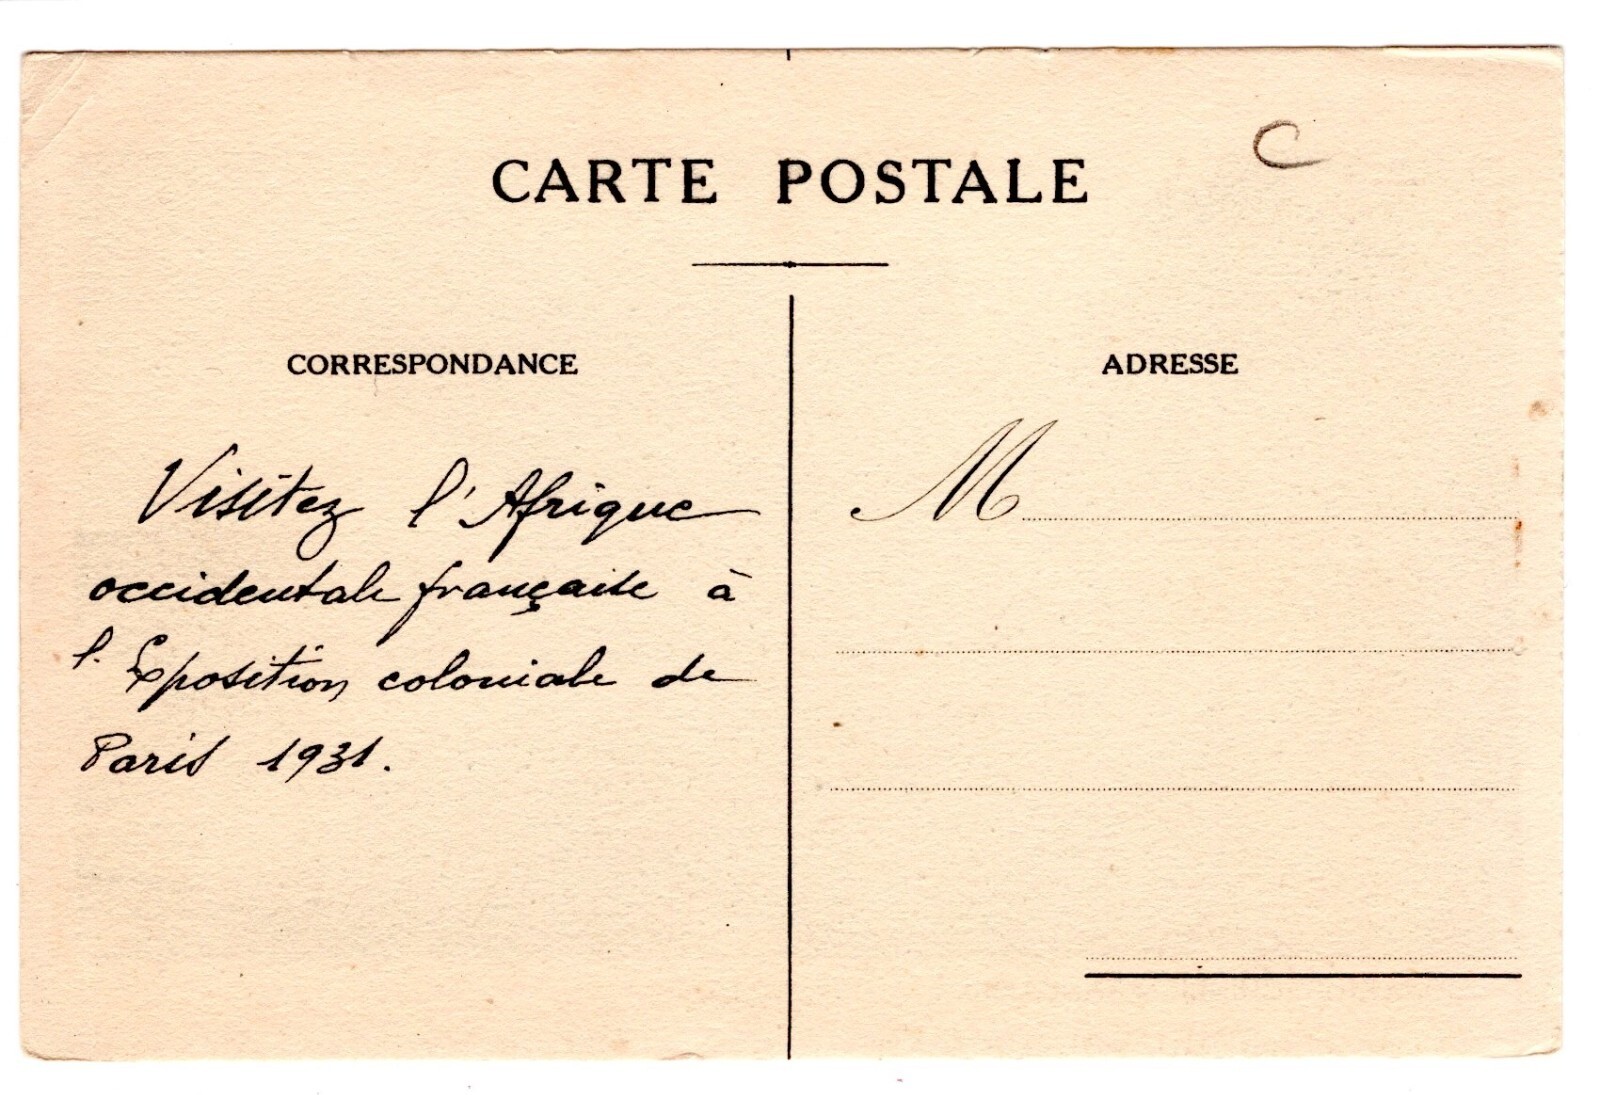 C
CARTE POSTALE
CORRESPONDANCE
Visitez l'Afrique
occidentale française à
l'Exposition coloniale de
Paris 1931.
ADRESSE
M